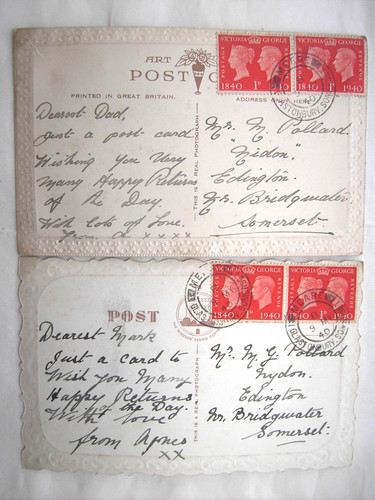 ART
POST
PRINTED IN GREAT BRITAIN.
ADDRESS
THIS IS A REAL PHOTOGRAPH
Dearest Dad,
Just a post card
Wishing you Very
Many Happy Returns
of the Day.
With lots of Love.
x x x x
VICTORIA GEORGE
POSTAGE REVENUE
1840 1D 1940
VICTORIA GEORGE
POSTAGE REVENUE
1840 1D 1940
MEARE
GLASTONBURY, SOM
Mr. M. Pollard
"Nidon"
Edington
Nr. Bridgwater
Somerset
POST
THIS IS A REAL PHOTOGRAPH
Dearest Mark
Just a card to
Wish you Many
Happy Returns
of the Day.
With love
from Agnes
x x
VICTORIA GEORGE
POSTAGE REVENUE
1840 1D 1940
VICTORIA GEORGE
POSTAGE REVENUE
1840 1D 1940
MEARE
GLASTONBURY, SOM
Mr. M. G. Pollard
Nydon
Edington
Nr. Bridgwater
Somerset.